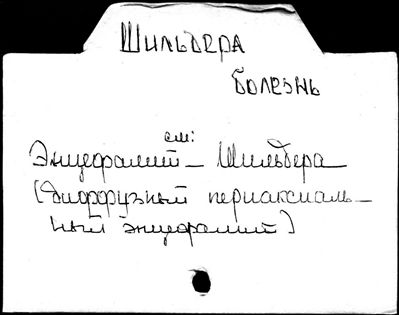 Шильдера
болезнь
см:
Энцефалит – Шильдера
(диффузный периаксиаль-
ный энцефалит)